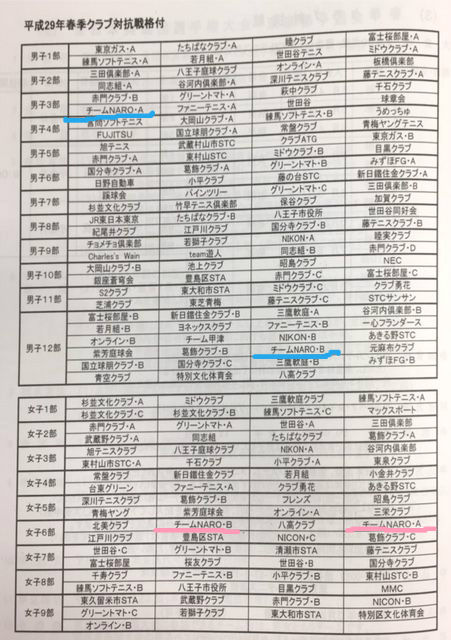 平成29年春季クラブ対抗戦格付
男子1部 東京ガス・A たちばなクラブ・A 睦クラブ 富士桜部屋・A
練馬ソフトテニス・A 若鮎会・A 世田谷テニス ミドウクラブ・A
男子2部 三田倶楽部・A 八王子庭球クラブ オンライン・A 板橋倶楽部
同志組・A 谷河内倶楽部・A 深川テニスクラブ 藤テニスクラブ・A
男子3部 赤門クラブ・B グリーントマト・A 萩中クラブ 千石クラブ
チームNARO・A ファニーテニス・A 世田谷 球童会
男子4部 富問ソフトテニス 大岡山クラブ・A 練馬ソフトテニス・B うめっちゅ
FUJITSU 国立球朋クラブ・A 常盤クラブ 青梅ヤングテニス
男子5部 旭テニス 武蔵村山STC クラブATG 東京ガス・B
赤門クラブ・A 東村山STC ミドウクラブ・B 目黒クラブ
男子6部 国分寺クラブ・A 葛飾クラブ・A グリーントマト・B みずほFG・A
日野自動車 小平クラブ 藤の台STC 新日鐵住金クラブ・A
男子7部 蹊球会 パインツリー グリーントマト・C 三田倶楽部・B
杉並文化クラブ 竹早テニス倶楽部 保谷クラブ 加賀クラブ
男子8部 JR東日本東京 たちばなクラブ・B 八王子市役所 世田谷同好会
紀尾井クラブ 江戸川クラブ 国分寺クラブ・B ミドウクラブ・B
男子9部 チョメチョメ倶楽部 若獅子クラブ NIKON・A 睦実クラブ
Charles's Wain team遊人 同志組・B 赤門クラブ・D
男子10部 大岡山クラブ・B 池上クラブ 昭島クラブ NEC
銀座蒼穹会 豊島区STA 赤門クラブ・C 富士桜部屋・C
男子11部 S2クラブ 東大和市STA ミドウクラブ・C クラブ勇花
芝浦クラブ 東芝青梅 藤テニスクラブ・C STCサンサン
男子12部 富士桜部屋・B 新日鐵住金クラブ・B 三鷹軟庭・A 谷河内倶楽部・B
若月組・B ヨネックスクラブ ファニーテニス・B 一心フランダース
オンライン・B チーム甲津 NIKON・B あきる野STC
紫芳庭球会 葛飾クラブ・B チームNARO・B 元麻布クラブ
国立球朋クラブ・B 国分寺クラブ・C 三鷹軟庭・B みずほFG・B
青空クラブ 特別文化体育会 八高クラブ
女子1部 杉並文化クラブ・A ミドウクラブ 三鷹文化クラブ 練馬ソフトテニス・A
杉並文化クラブ・C 杉並文化クラブ・B 練馬ソフトテニス・C マックスポート
女子2部 赤門クラブ・A グリーントマト・A 世田谷・A 三田倶楽部
武蔵野クラブ・A 同志組 たちばなクラブ 葛飾クラブ・A
女子3部 旭テニスクラブ 八王子庭球クラブ NIKON・A 国立球朋クラブ
東村山市STC・A 千石クラブ 小平クラブ・A 東泉クラブ
女子4部 常盤クラブ 新日鐵住金クラブ 若月組 小金井クラブ
台東グリーン ファニーテニス・A クラブ勇花 あきる野STC
女子5部 深川テニスクラブ 葛飾クラブ・B フレンズ 昭島クラブ
青梅ヤング 紫芳庭球会 オンライン・A 三栄クラブ
女子6部 北美クラブ チームNARO・B 八高クラブ チームNARO・A
江戸川クラブ 豊島区STA NICON・C 葛飾クラブ・C
女子7部 世田谷・C グリーントマト・B 清瀬市STA 藤テニスクラブ
富士桜部屋 桜友クラブ 世田谷・B 国分寺クラブ
女子8部 千寿クラブ ファニーテニス・B 小平クラブ・B 東村山STC・B
練馬ソフトテニス・B 八王子市役所 目黒クラブ MMC
女子9部 東久留米市STA 武蔵野クラブ・B 赤門クラブ・B NICON・B
グリーントマト・C 若獅子クラブ 東大和市STA 特別区文化体育会
オンライン・B